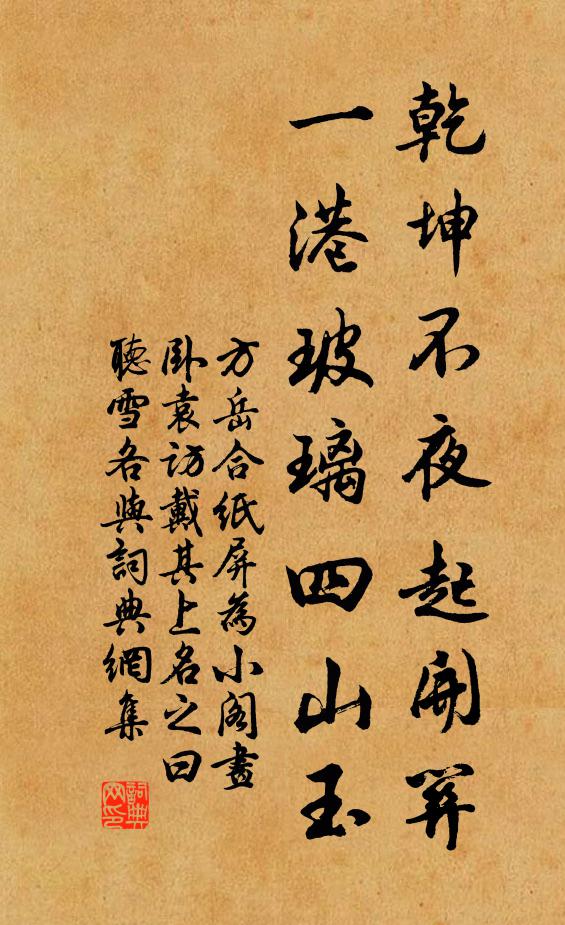 乾坤不夜起開關
一港玻璃四山玉
方岳合紙屏為小閣畫
卧袁訪戴其上名之曰
聽雪各與詞典網集
詞典
网印